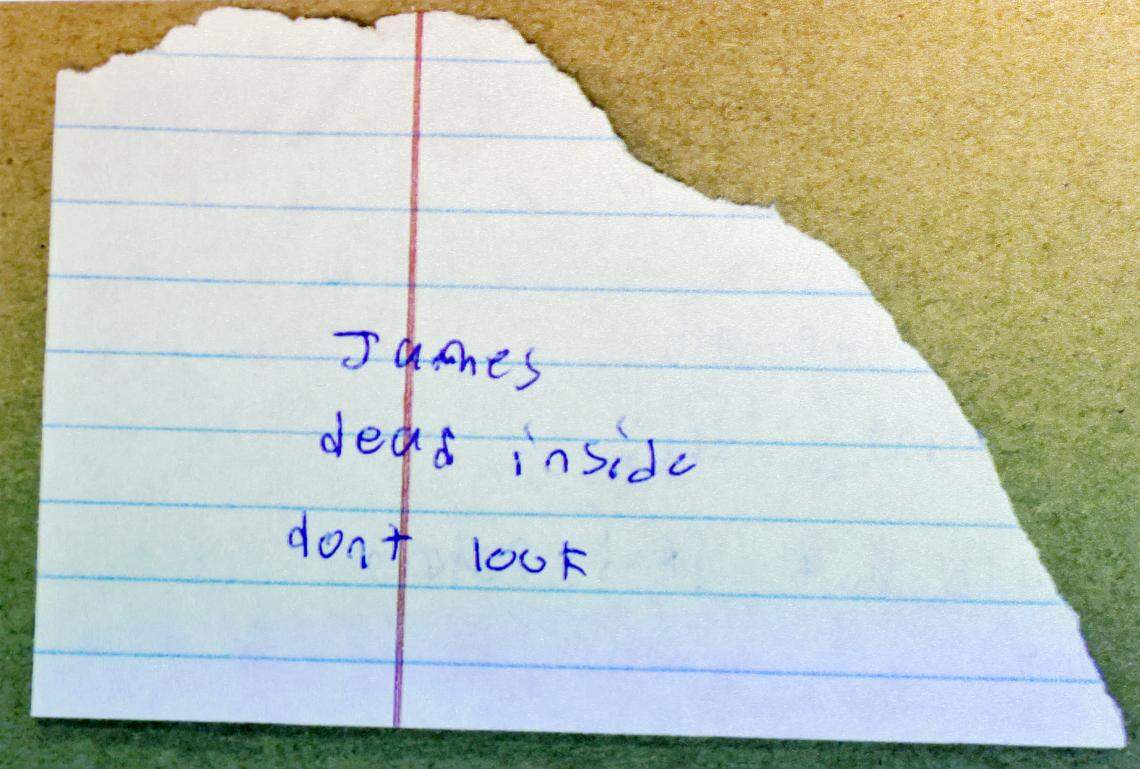 James
dead inside
dont look